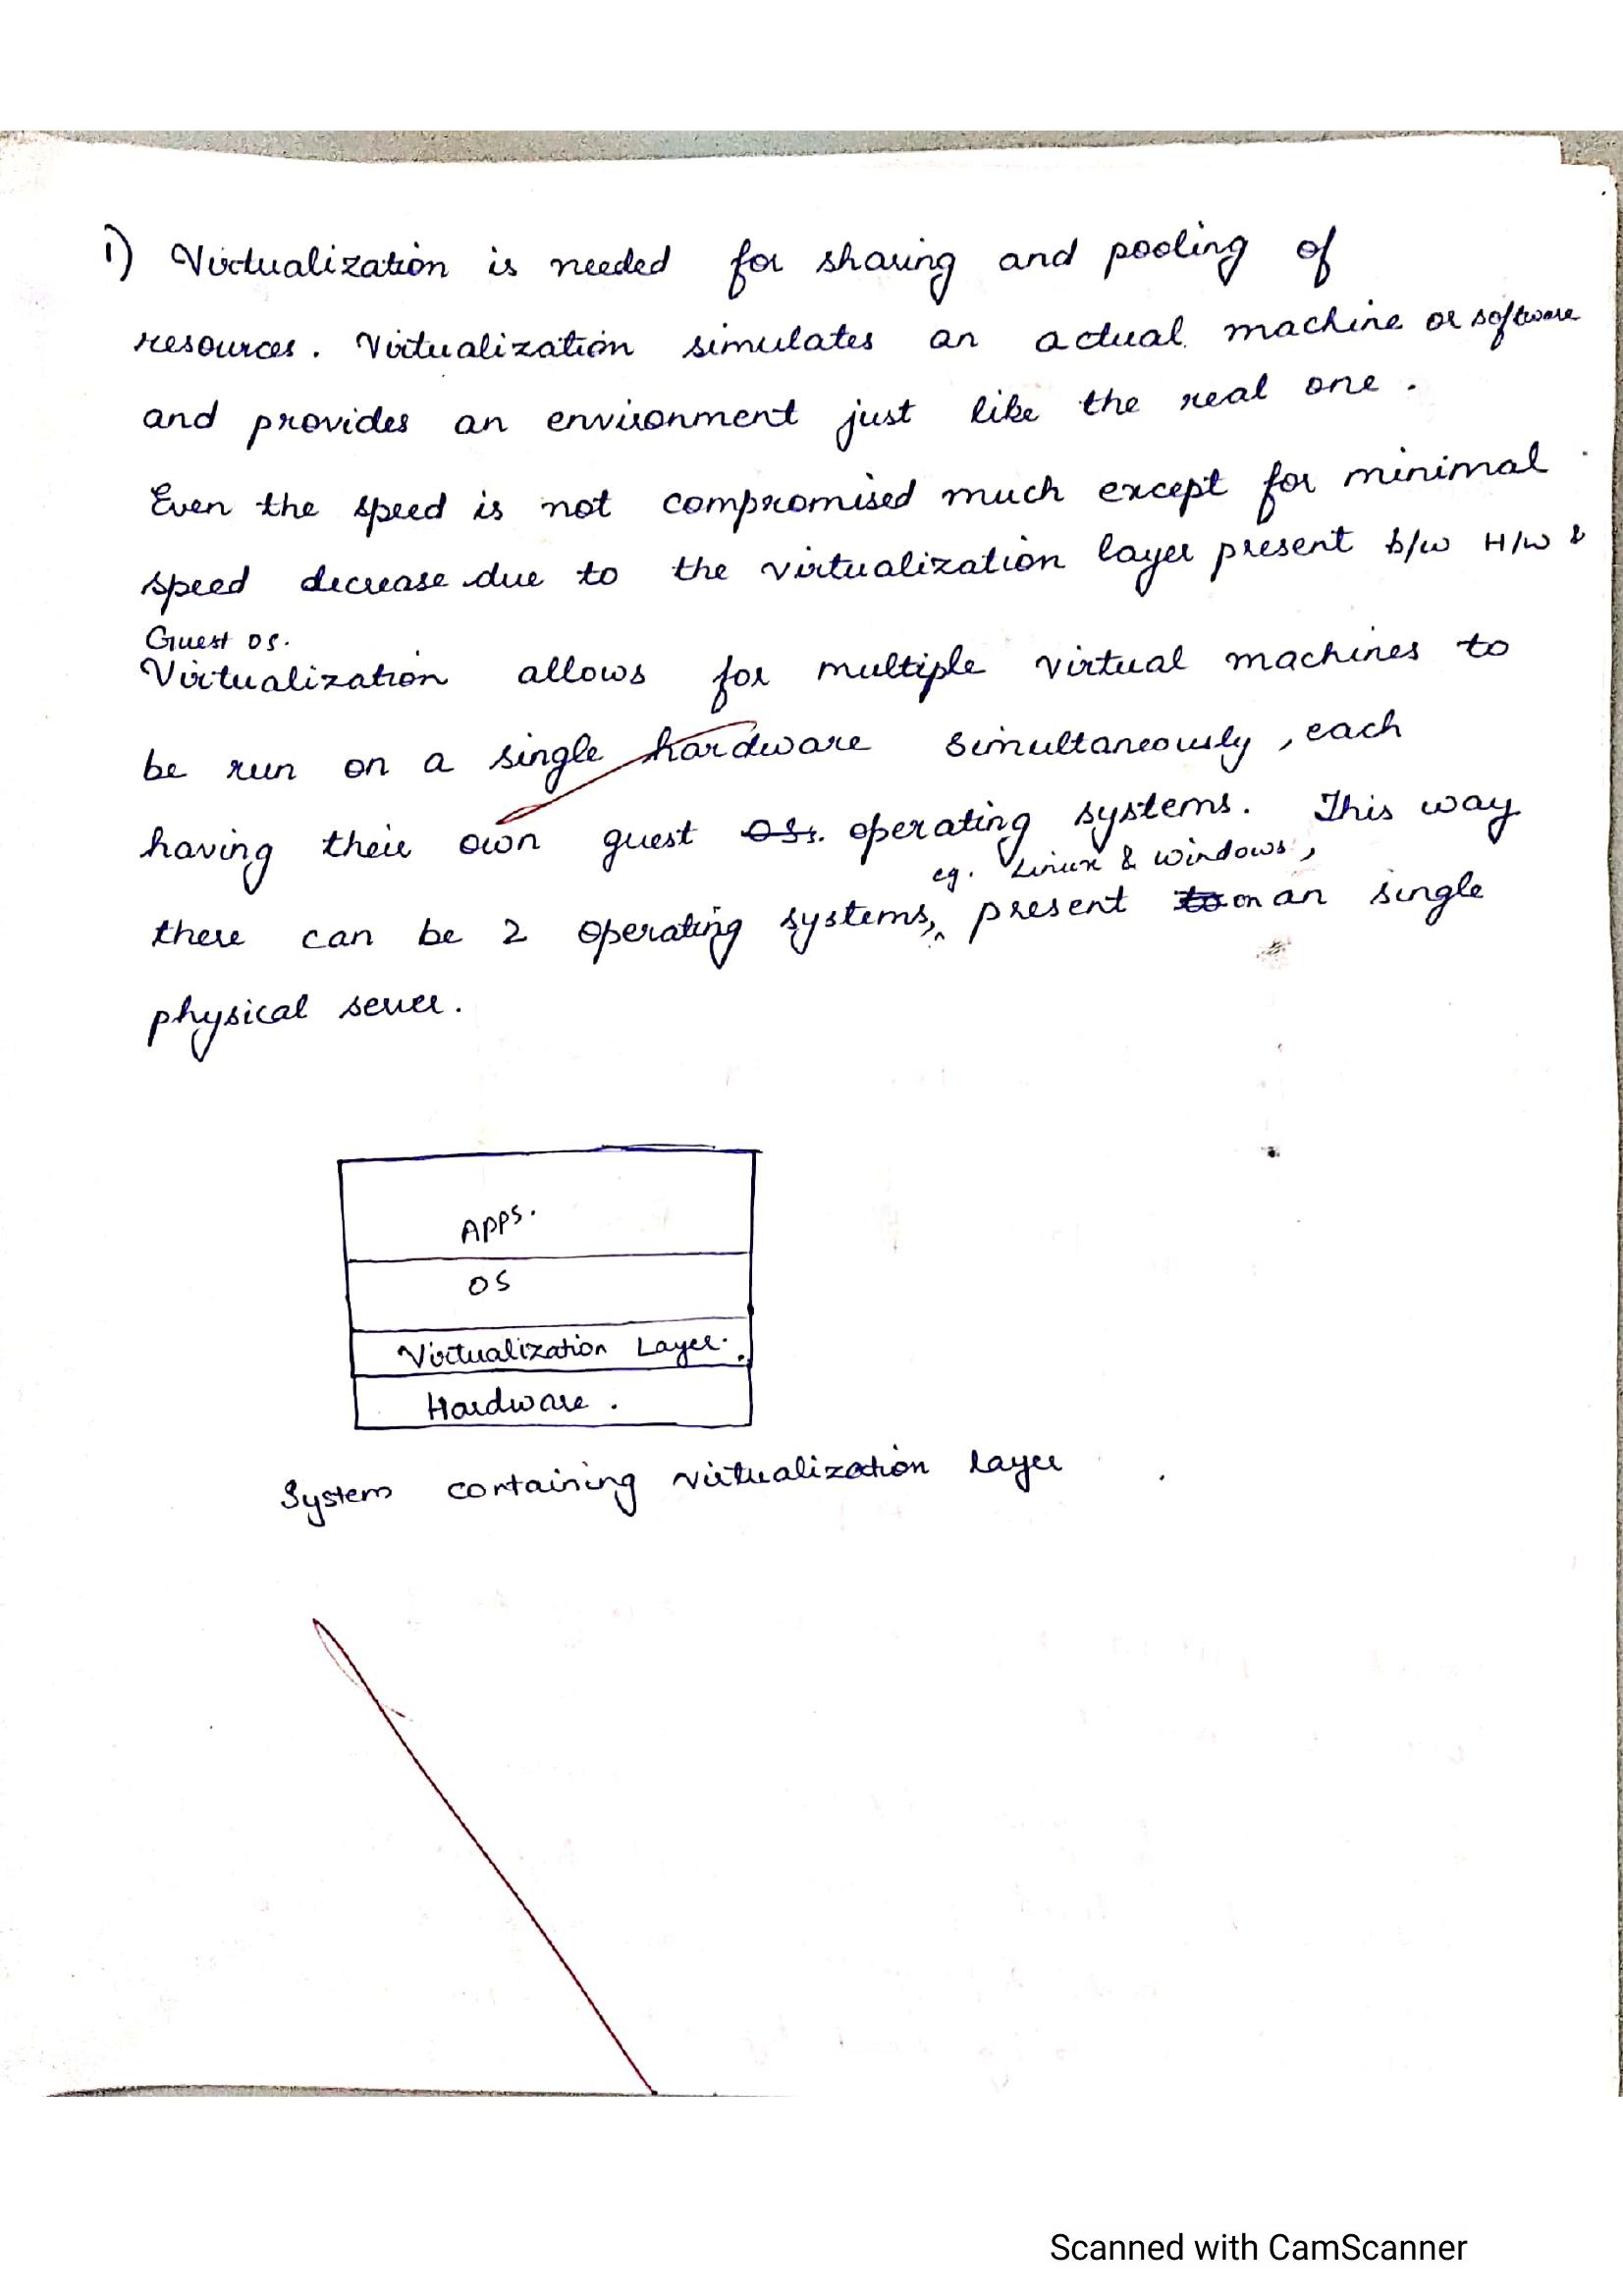 i) Virtualization is needed for sharing and pooling of
resources. Virtualization simulates an actual machine or software
and provides an environment just like the real one.
Even the speed is not compromised much except for minimal
speed decrease due to the virtualization layer present b/w H/W &
Guest OS.
Virtualization allows for multiple virtual machines to
be run on a single hardware simultaneously, each
having their own guest OSs. operating systems. This way
eg. Linux & windows,
there can be 2 operating systems, present to on an single
physical server.
Apps.
OS
Virtualization Layer.
Hardware.
System containing virtualization layer
Scanned with CamScanner